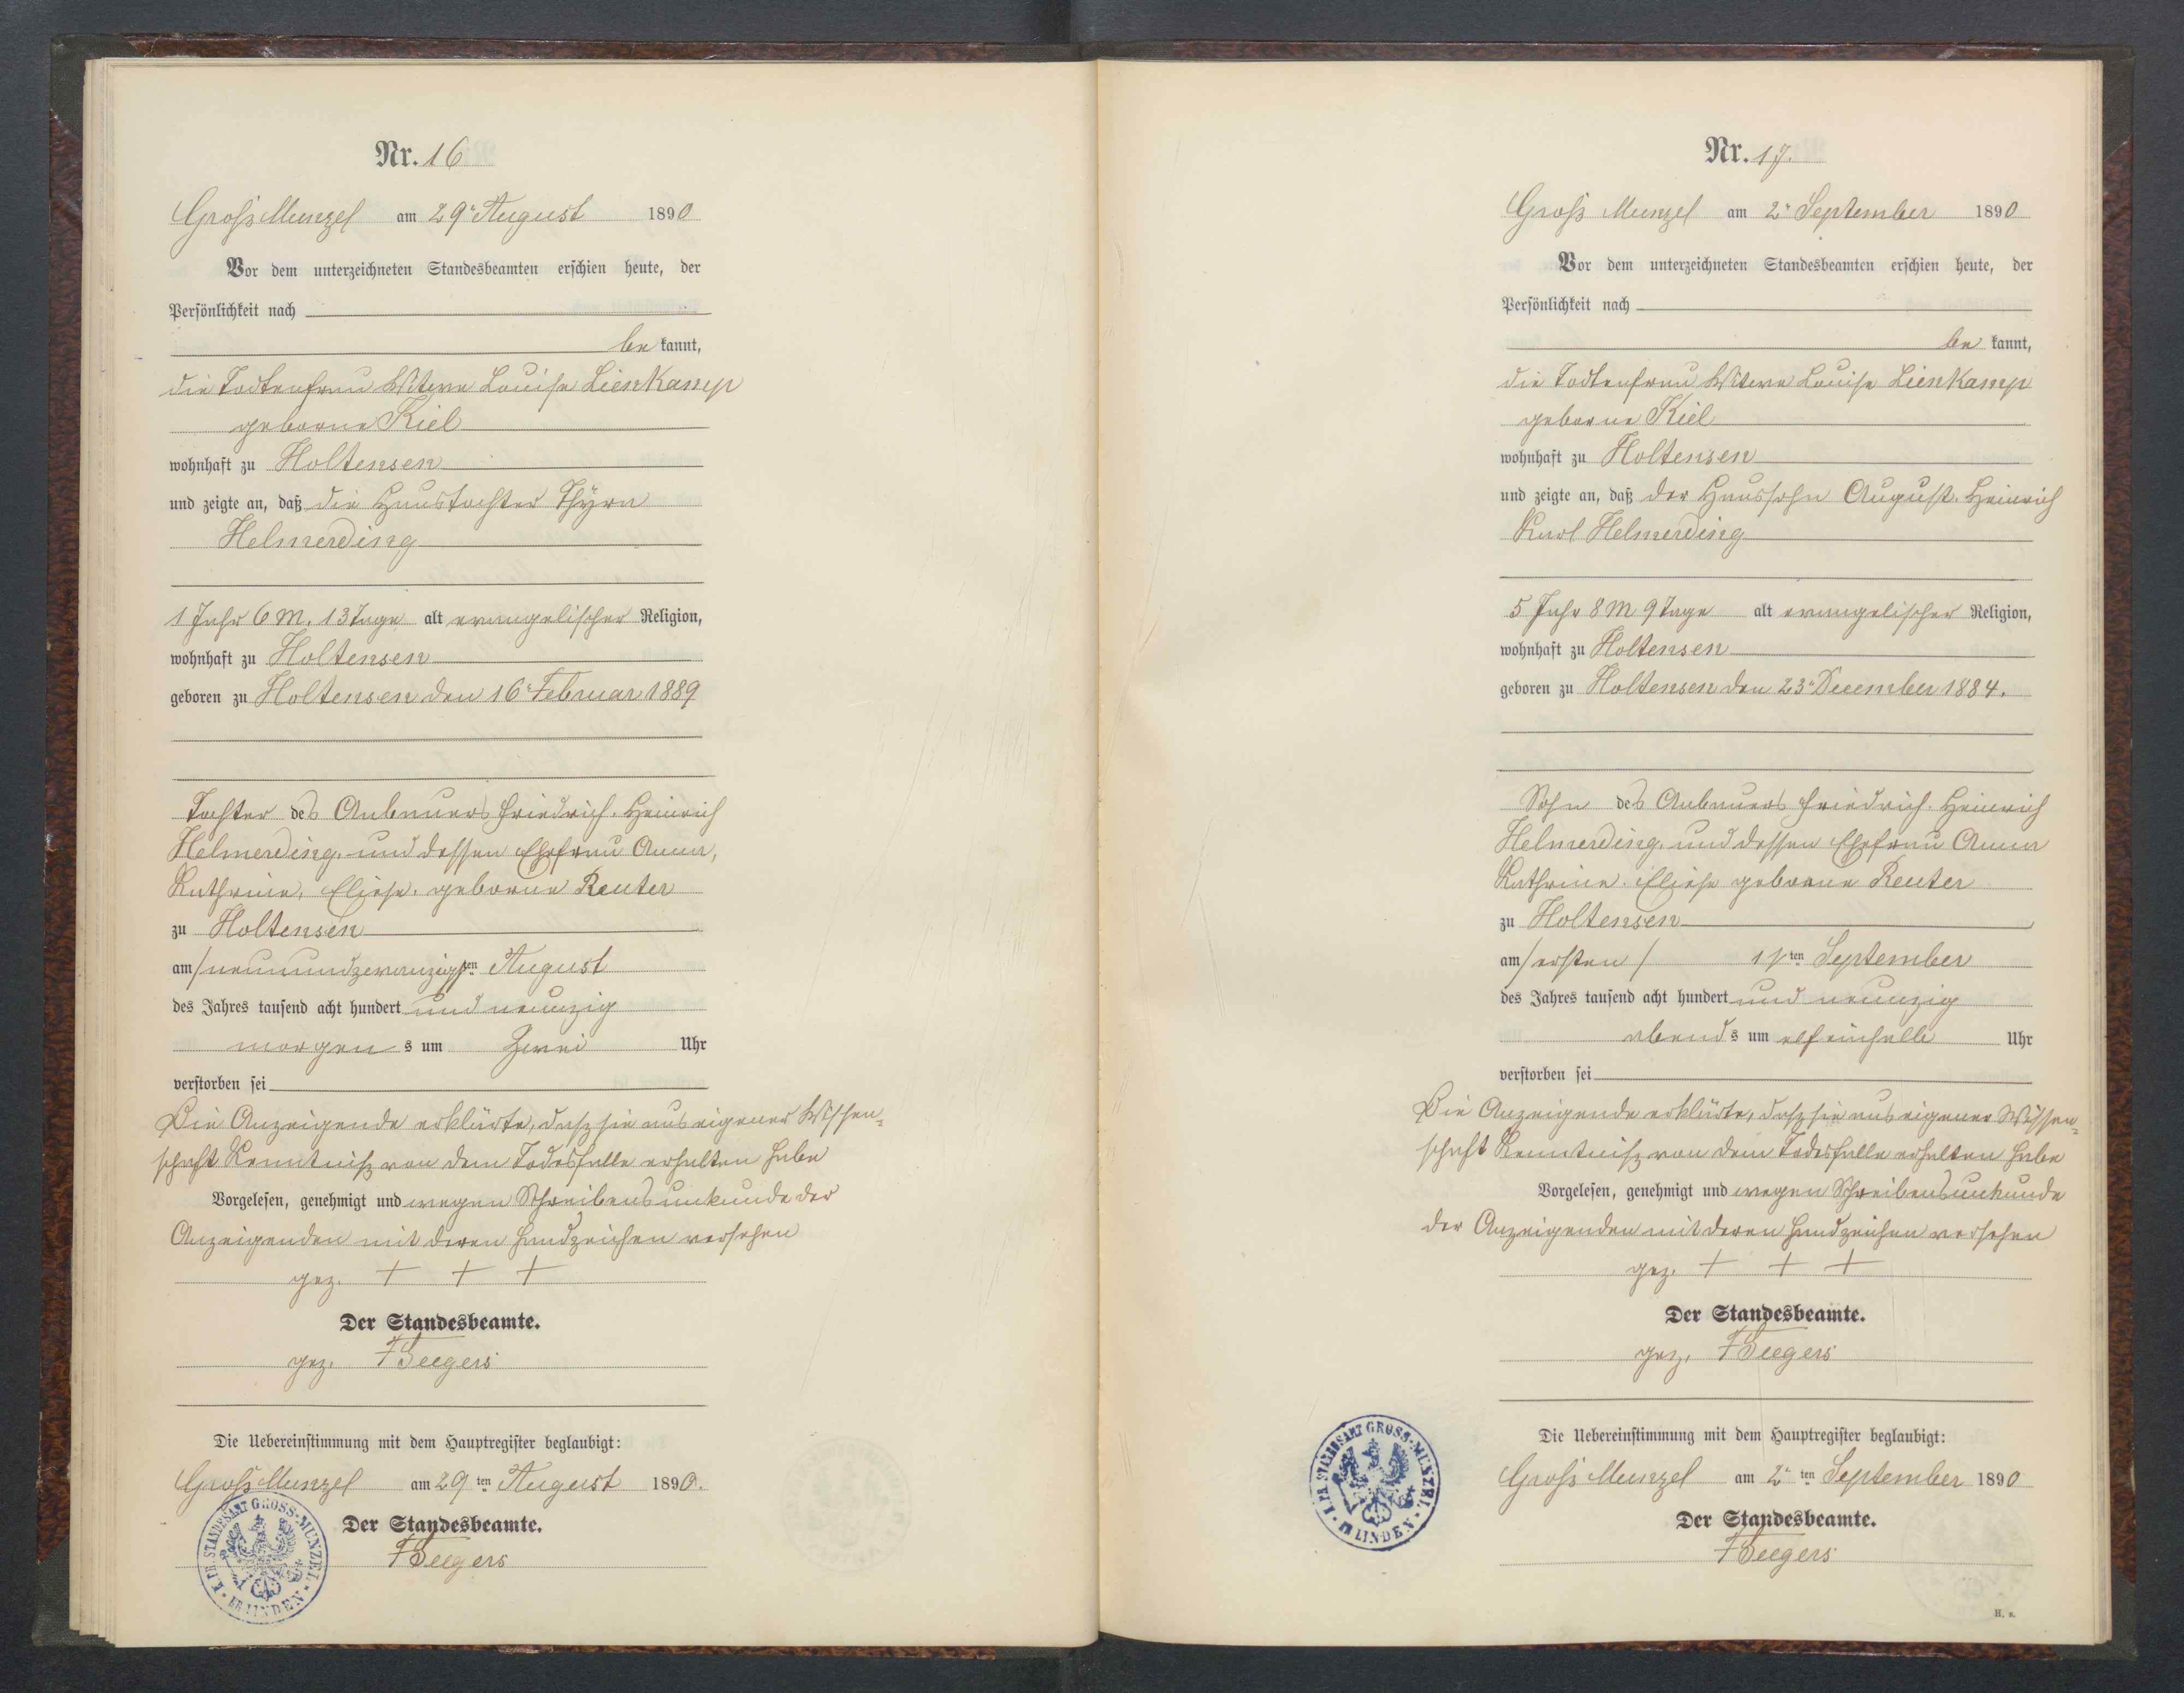 Nr. 16
Groß Munzel am 29t August 1890
Vor dem unterzeichneten Standesbeamten erschien heute, der
Persönlichkeit nach
be kannt,
die Todtenfrau Witwe Louise Lienkamp
geborne Kiel
wohnhaft zu Holtensen
und zeigte an, daß die Haustochter Thyra
Helmerding
1 Jahr 6 M. 13 Tage alt evangelischer Religion,
wohnhaft zu Holtensen
geboren zu Holtensen den 16t Februar 1889
Tochter des Anbauers Friedrich Heinrich
Helmerding und dessen Ehefrau Anna,
Kathrine, Eliese, geborne Reuter
zu Holtensen
am / neunundzwanzigsten August
des Jahres tausend acht hundert und neunzig
morgen s um Zwei Uhr
verstorben sei
Die Anzeigende erklärte, dasz sie aus eigener Wissen-
schaft Kenntnisz von dem Todesfalle erhalten habe
Vorgelesen, genehmigt und wegen Schreibensunkunde der
Anzeigenden mit deren Handzeichen versehen
gez. + + +
Der Standesbeamte.
gez. F Seegers
Die Uebereinstimmung mit dem Hauptregister beglaubigt:
Groß Munzel am 29 ten August 1890.
Der Standesbeamte.
F Seegers
K. PR. STANDESAMT GROSS-MUNZEL KR. LINDEN
Nr. 17.
Groß Munzel am 2t September 1890
Vor dem unterzeichneten Standesbeamten erschien heute, der
Persönlichkeit nach
be kannt,
die Todtenfrau Witwe Louise Lienkamp
geborne Kiel
wohnhaft zu Holtensen
und zeigte an, daß der Haussohn August Heinrich
Karl Helmerding
5 Jahr 8 M 9 Tage alt evangelischer Religion,
wohnhaft zu Holtensen
geboren zu Holtensen den 23t December 1884.
Sohn des Anbauers Friedrich Heinrich
Helmerding, und dessen Ehefrau Anna
Kathrine Eliese geborne Reuter
zu Holtensen
am / ersten / 1 ten September
des Jahres tausend acht hundert und neunzig
abend s um elfeinhalb Uhr
verstorben sei
Die Anzeigende erklärte, dasz sie aus eigener Wissen-
schaft Kenntnisz von dem Todesfalle erhalten habe
Vorgelesen, genehmigt und wegen Schreibensunkunde
der Anzeigenden mit deren Handzeichen versehen
gez. + + +
Der Standesbeamte.
gez. F Seegers
Die Uebereinstimmung mit dem Hauptregister beglaubigt:
Groß Munzel am 2t ten September 1890
Der Standesbeamte.
F Seegers
K. PR. STANDESAMT GROSS-MUNZEL KR. LINDEN
H. s.